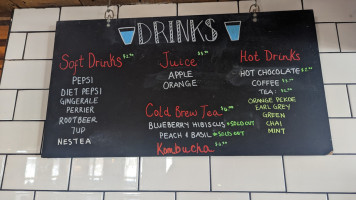 DRINKS
Soft Drinks
PEPSI
DIET PEPSI
GINGERALE
PERRIER
ROOTBEER
7UP
NESTEA
Juice
APPLE
ORANGE
Cold Brew Tea
BLUEBERRY HIBISCUS SOLD OUT
PEACH & BASIL SOLD OUT
Kombucha
Hot Drinks
HOT CHOCOLATE
COFFEE
TEA:
ORANGE PEKOE
EARL GREY
GREEN
CHAI
MINT